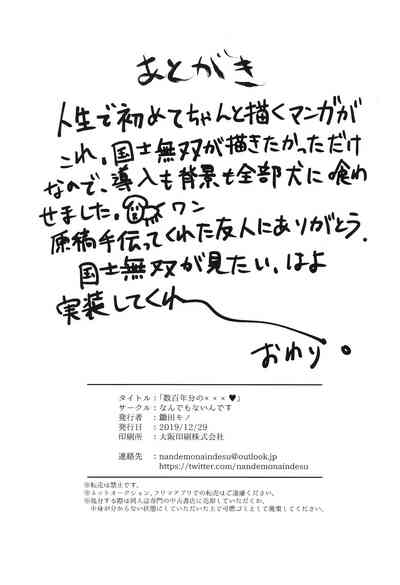 あとがき
人生で初めてちゃんと描くマンガが
これ。国士無双が描きたかっただけ
なので、導入も背景も全部犬に喰わ
せました。ワン
原稿手伝ってくれた友人にありがとう.
国士無双が見たい。はよ
実装してくれー
おわり。
タイトル：「数百年分の×××♥」
サークル：なんでもないんです
発行者　：鋤田モノ
発行日　：2019/12/29
印刷所　：大阪印刷株式会社
連絡先　：nandemonaindesu@outlook.jp
https://twitter.com/nandemonaindesu
※転売は禁止です。
※ネットオークション、フリマアプリでの転売はご遠慮ください。
※処分する際は同人誌専門の中古書店に売却していただくか、
中身が分からない状態にしていただいた上で可燃ごみとして廃棄してください。